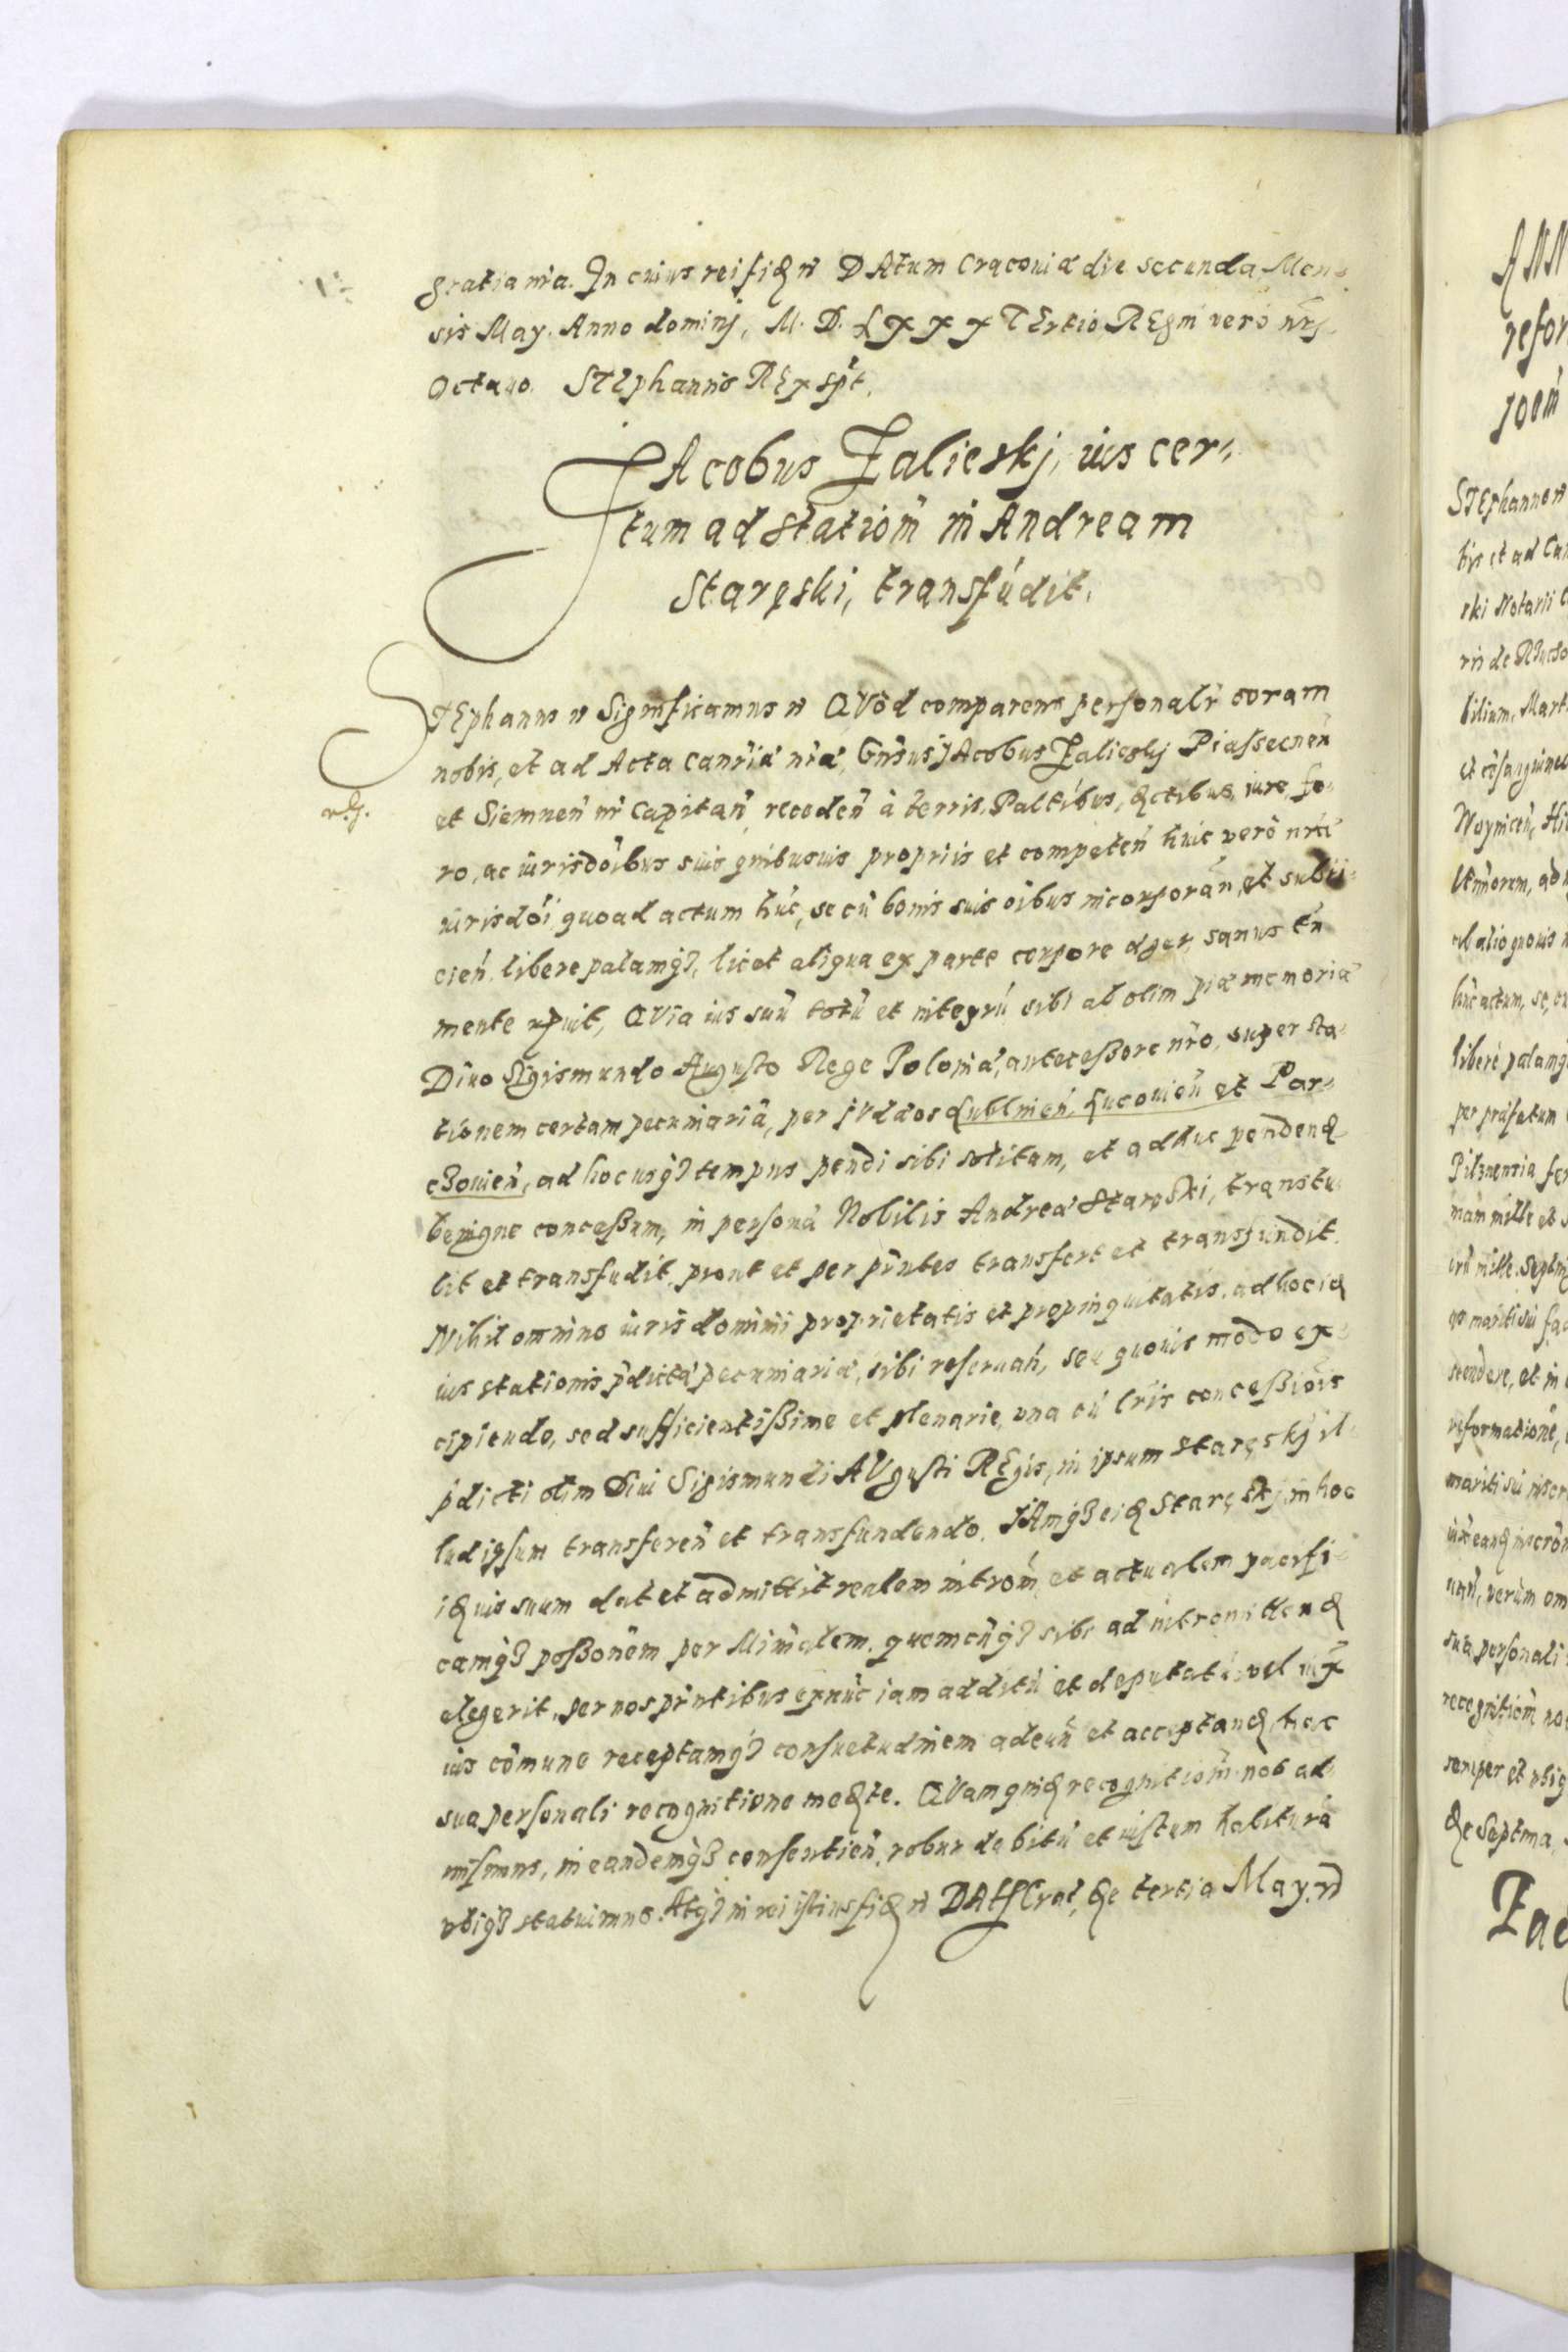 gratia nr̄a. In cuius rei fidẽ ꝛc̃ DAtum Cracouiæ die secunda Men=
sis May. Anno dominj, M. D. Lxxx TErtio REgni vero nrj̄
Octauo. STEphanus REx sp̄t.
JAcobus Zalieskj, ius cer=
tum ad station̄ in Andream
Staręski, transfudit.
STEphanus ꝛc̃ Significamus ꝛc̃ QVod comparens personalr̄ coram
nobis, et ad Acta Canr̄iæ nr̄æ, Gn̄sus JAcobus Zalieskj Piassecnen̄
et Siemnen̄ nr̄ Capitan̄, receden̄ à terris, Paltibus, dc̄tibus, iure, fo=
ro, ac iurisdōibus suis qnibusuis propriis et competen̄ huic vero nrī
iurisdōi, quoad actum hūc, se cū bonis suis oībus incorporan̄, et subii=
cien̄. libere palamqꝫ, licet aliqua ex parte corpore æger, sanus tn̄
mente, QVia ius suū totū et integrū sibi ab olim piæ memoriæ
Diuo Sigismundo Augusto Rege Poloniæ, anteceßore nr̄o, super sta=
tionem certam pecuniariā, per JVdæos Lublinen̄, Lucouien̄ et Par=
czouien̄, ad hoc usqꝫ tempus pendi sibi solitam, et adhuc pendend̄
benigne conceßum, in personā Nobilis Andreæ Staręski, transtu=
lit et transfudit, prout et per pn̄tes transfert et transfundit.
Nihil omnino iuris dominii proprietatis et propinquitatis, ad hoc id̄
ius stationis p̄dictæ pecuniariæ, sibi reseruan̄, seu quouis modo ex=
cipiendo, sed sufficientißime et plenarie, una cū lr̄is conceßiōis
p̄dicti olim Diui Sigismundi AVgusti REgis, in ipsum Staręskj il=
lud ipsum transferen̄ et transfundendo. JAmqꝫ eid̄ Staręskj in hoc
id̄ ius suum dat et admittit realem introm̄, et actualem pacifi=
camqꝫ poßonem per Minr̄alem, quemcūqꝫ sibi ad intromittend̄
elegerit, per nos pn̄tibus exnūc iam additū et deputatū, vel iux̄
ius cōmune receptamqꝫ consuetudinem adeun̄ et acceptand̄, hac
sua personali recognitione med̄te. QVam quid̄ recognitiom̄ nos ad=
misimus, in eandemqꝫ consentien̄, robur debitū et iustum habiturā
ubiqꝫ statuimus. Atqꝫ in rei istius fid̄ ꝛc̃ DAt Crac̄, d̄e tertia May. ꝛc̃